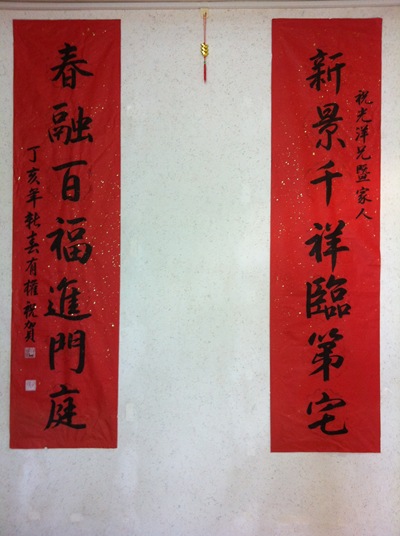 新景千祥臨第宅
祝光洋兄暨家人
春融百福進門庭
丁亥年秋春有權祝賀